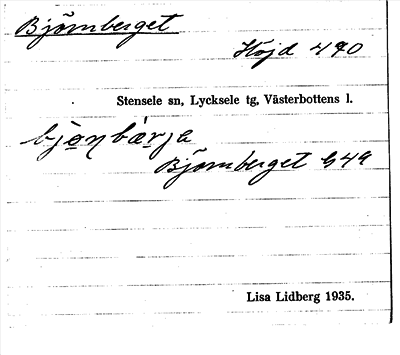 Björnberget
Höjd 490
Stensele sn, Lycksele tg, Västerbottens l.
Björnberget G49
Lisa Lidberg 1935.